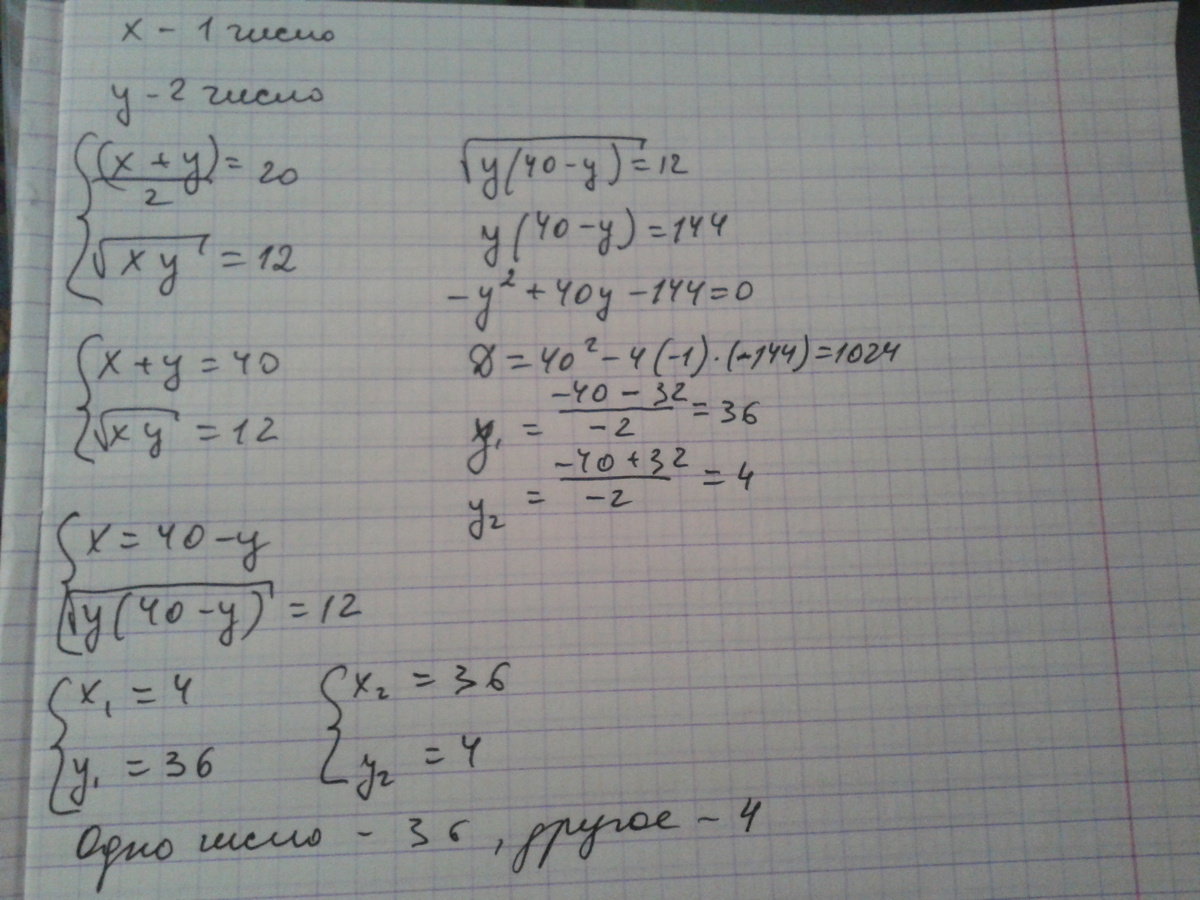 x - 1 число
y - 2 число
{ (x + y)/2 = 20
√(xy) = 12
{ x + y = 40
√(xy) = 12
{ x = 40 - y
√(y(40 - y)) = 12
√(y(40 - y)) = 12
y(40 - y) = 144
-y² + 40y - 144 = 0
D = 40² - 4(-1)·(-144) = 1024
y₁ = (-40 - 32)/(-2) = 36
y₂ = (-40 + 32)/(-2) = 4
{ x₁ = 4
y₁ = 36
{ x₂ = 36
y₂ = 4
Одно число - 36, другое - 4